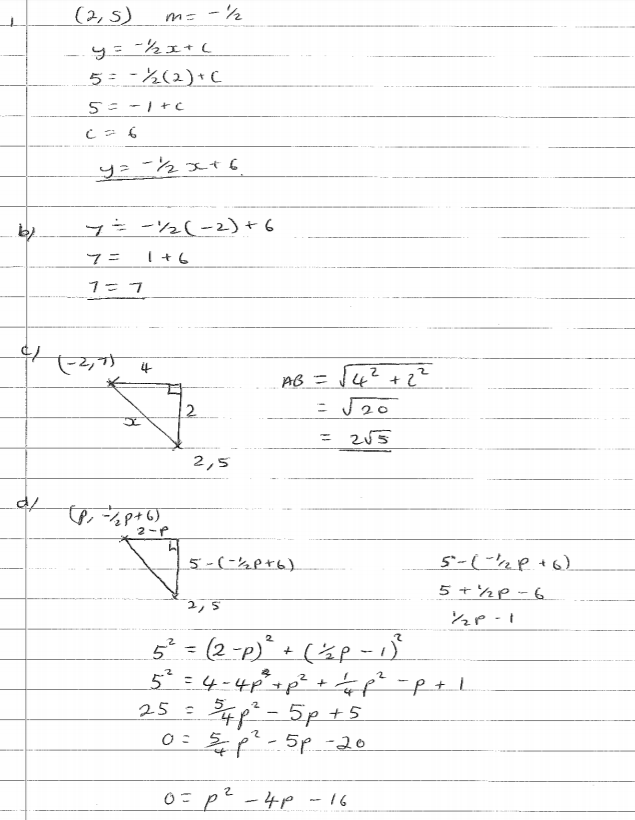 1 (2,5) m = -1/2
y = -1/2 x + c
5 = -1/2(2) + c
5 = -1 + c
c = 6
y = -1/2 x + 6
b) 7 = -1/2(-2) + 6
7 = 1 + 6
7 = 7
c) (-2,7) 4
2
x
2,5
AB = √(4² + 2²)
= √20
= 2√5
d) (p, -1/2p+6)
2-p
5-(-1/2p+6)
2,5
5-(-1/2p+6)
5 + 1/2p - 6
1/2p - 1
5² = (2-p)² + (1/2p - 1)²
5² = 4 - 4p + p² + 1/4p² - p + 1
25 = 5/4p² - 5p + 5
0 = 5/4p² - 5p - 20
0 = p² - 4p - 16